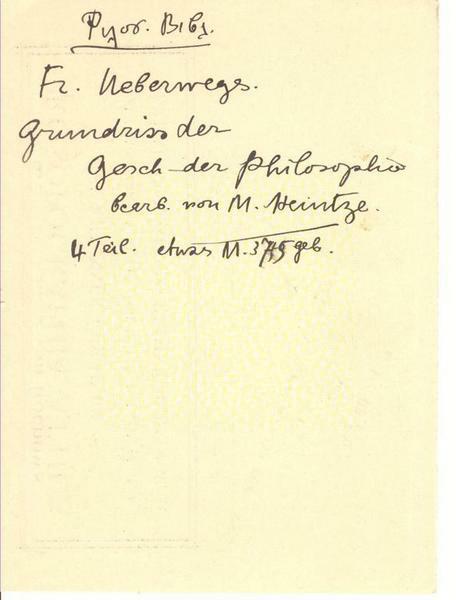 Φιλοσ. Βιβλ.
Fr. Ueberwegs.
Grundriss der
Gesch der Philosophie
bearb. von M. Heintze.
4 Teil. etwas M. geb.